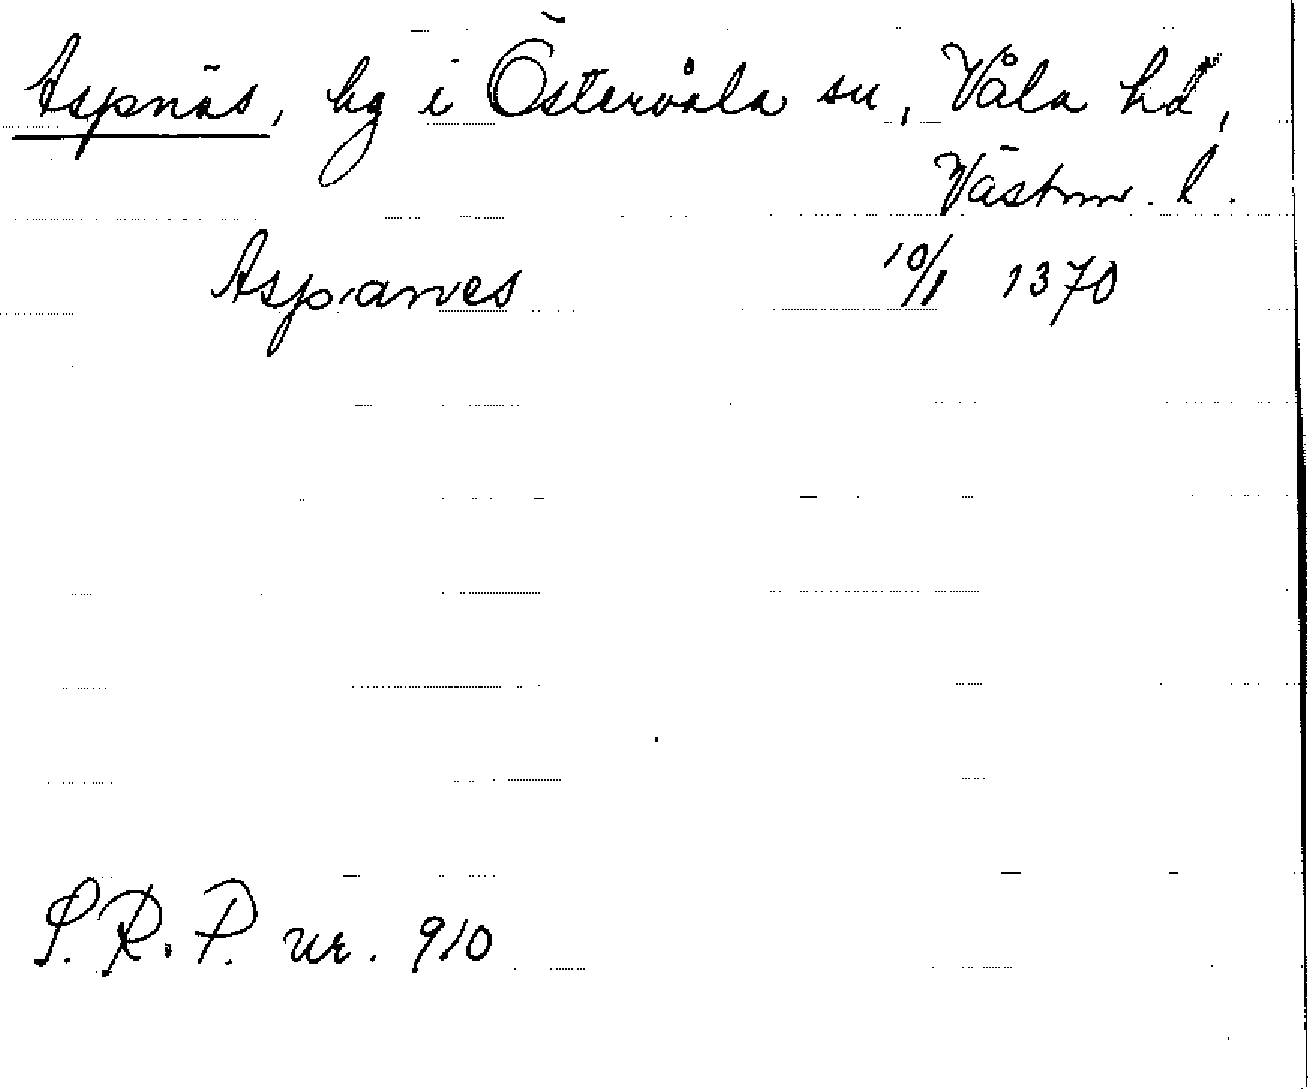 Aspnäs, hg i Östervåla sn, Våla hd,
Västm. l.
Aspanes 10/1 1370
S.R.P. nr. 910